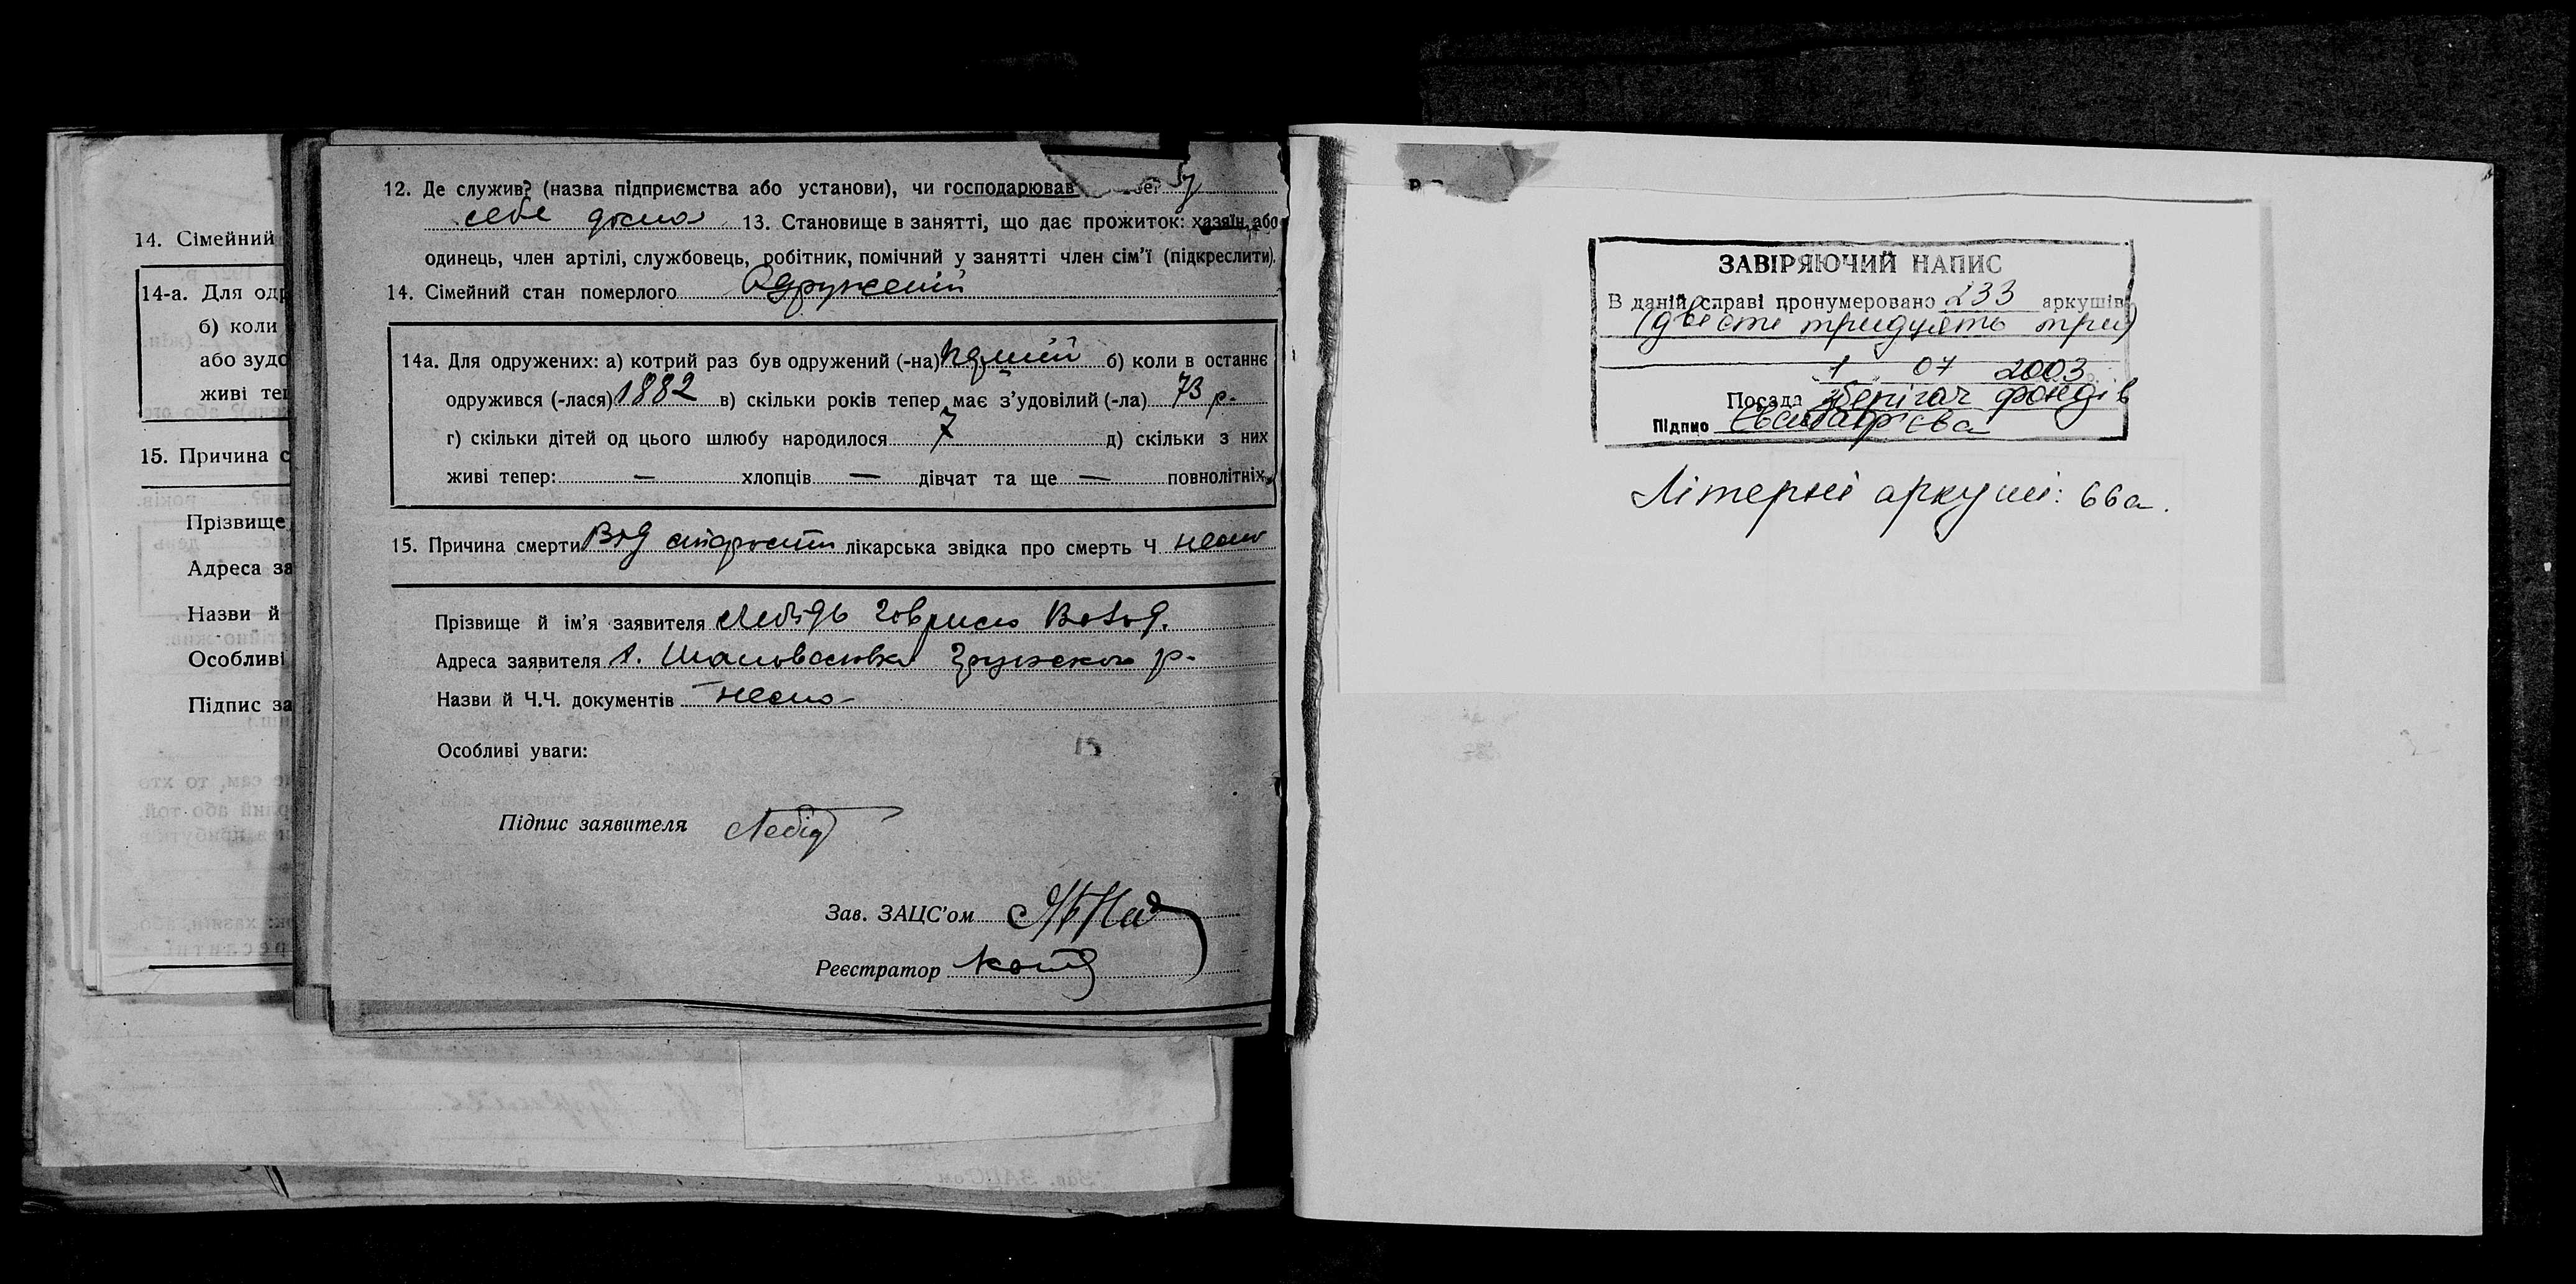 14. Сімейний
14-а. Для одр
б) коли
або зудо
живі теп
15. Причина с
Прізвище
Адреса за
Назви й
Особливі
Підпис за
12. Де служив? (назва підприємства або установи), чи господарював бе? У
себе дома 13. Становище в занятті, що дає прожиток: хазяїн, або
одинець, член артілі, службовець, робітник, помічний у занятті член сім'ї (підкреслити).
14. Сімейний стан померлого Одружений
14а. Для одружених: а) котрий раз був одружений (-на) б) коли в останнє
одружився (-лася) 1882 в) скільки років тепер має з'удовілий (-ла) 73 р.
г) скільки дітей од цього шлюбу народилося 7 д) скільки з них
живі тепер: — хлопців — дівчат та ще — повнолітніх.
15. Причина смерти Від старости лікарська звідка про смерть Ч нема
Прізвище й ім'я заявителя Лебідь Гаврило
Адреса заявителя с. Шаповалівка р.
Назви й Ч.Ч. документів нема
Особливі уваги:
Підпис заявителя Лебідь
Зав. ЗАЦС'ом
Реєстратор
ЗАВІРЯЮЧИЙ НАПИС
В даній справі пронумеровано 233 аркушів
(двісті тридцять три)
1 07 2003
Посада зберігач фондів
Підпис
Літерні аркуші: 66а.